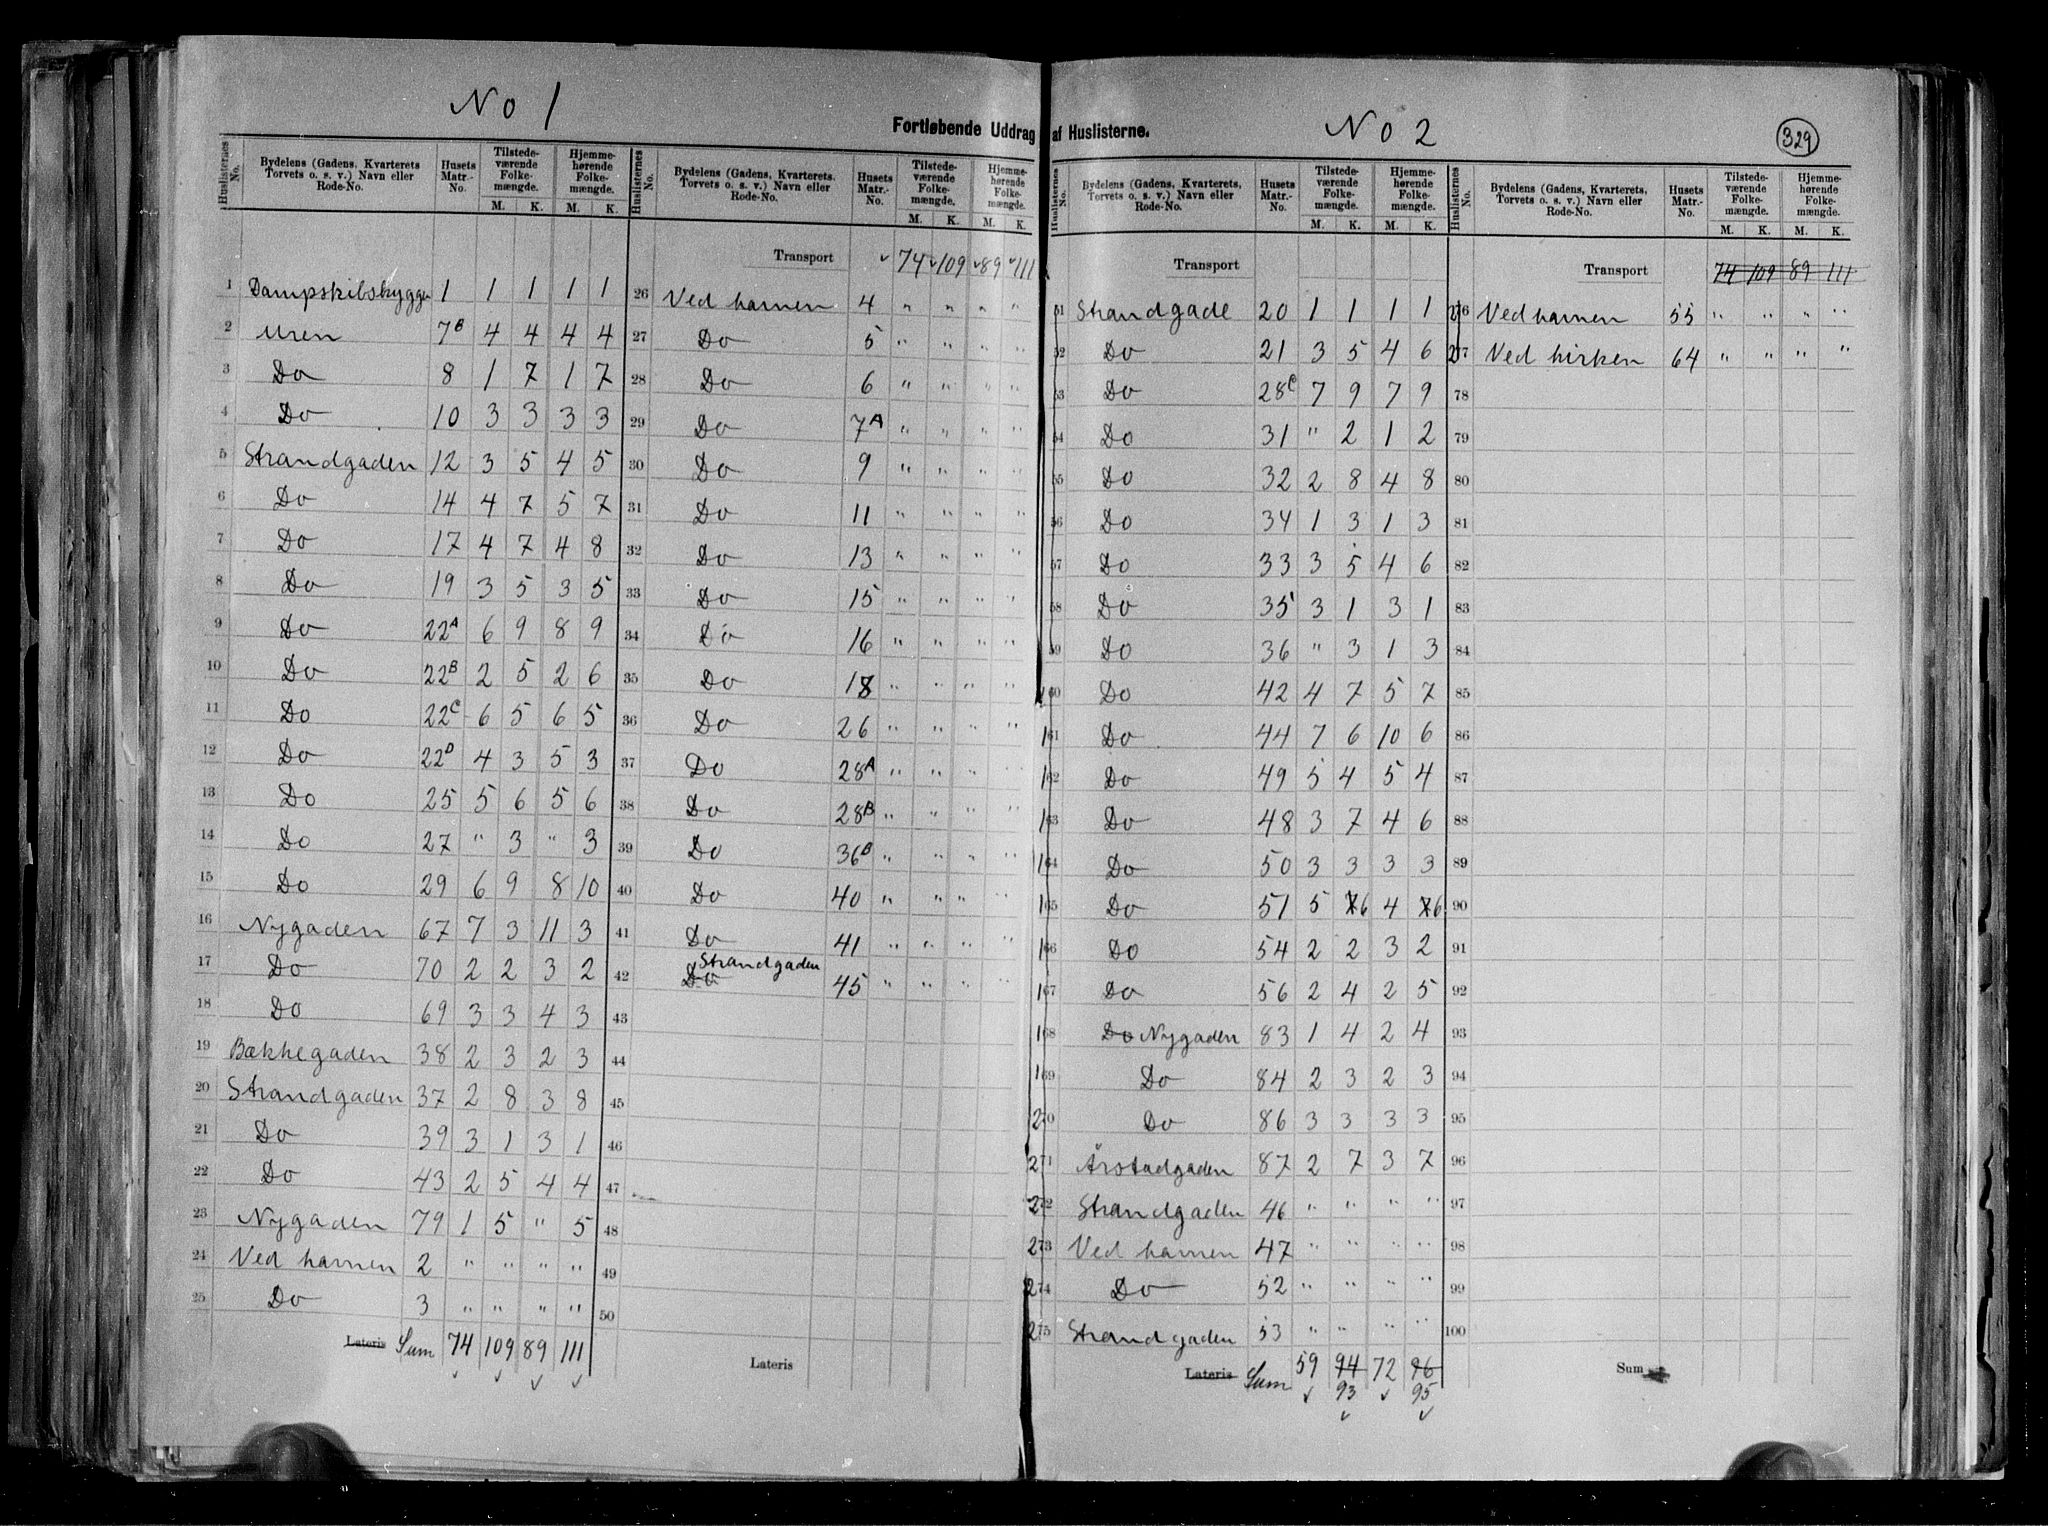 No 1
No 2
329
Fortløbende Uddrag af Huslisterne.
Huslisternes No. | Bydelens (Gadens, Kvarterets Torvets o. s. v.) Navn eller Rode-No. | Husets Matr.-No. | Tilstedeværende Folkemængde. M. K. | Hjemmehørende Folkemængde. M. K.
1 Dampskibsbrygge 1 1 1 1 1
2 Uren 7B 4 4 4 4
3 Do 8 1 7 1 7
4 Do 10 3 3 3 3
5 Strandgaden 12 3 5 4 5
6 Do 14 4 7 5 7
7 Do 17 4 7 4 8
8 Do 19 3 5 3 5
9 Do 22A 6 9 8 9
10 Do 22B 2 5 2 6
11 Do 22C 6 5 6 5
12 Do 22D 4 3 5 3
13 Do 25 5 6 5 6
14 Do 27 " 3 " 3
15 Do 29 6 9 8 10
16 Nygaden 67 7 3 11 3
17 Do 70 2 2 3 2
18 Do 69 3 3 4 3
19 Bækkegaden 38 2 3 2 3
20 Strandgaden 37 2 8 3 8
21 Do 39 3 1 3 1
22 Do 43 2 5 4 4
23 Nygaden 79 1 5 " 5
24 Ved havnen 2 " " " "
25 Do 3 " " " "
Lateris Sum 74 109 89 111
Huslisternes No. | Bydelens (Gadens, Kvarterets, Torvets o. s. v.) Navn eller Rode-No. | Husets Matr.-No. | Tilstedeværende Folkemængde. M. K. | Hjemmehørende Folkemængde. M. K.
Transport 74 109 89 111
26 Ved havnen 4 " " " "
27 Do 5 " " " "
28 Do 6 " " " "
29 Do 7A " " " "
30 Do 9 " " " "
31 Do 11 " " " "
32 Do 13 " " " "
33 Do 15 " " " "
34 Do 16 " " " "
35 Do 18 " " " "
36 Do 26 " " " "
37 Do 28A " " " "
38 Do 28B " " " "
39 Do 36B " " " "
40 Do 40 " " " "
41 Do 41 " " " "
42 Do Strandgaden 45 " " " "
43
44
45
46
47
48
49
50
Lateris
Huslisternes No. | Bydelens (Gadens, Kvarterets, Torvets o. s. v.) Navn eller Rode-No. | Husets Matr.-No. | Tilstedeværende Folkemængde. M. K. | Hjemmehørende Folkemængde. M. K.
Transport
51 Strandgade 20 1 1 1 1
52 Do 21 3 5 4 6
53 Do 28C 7 9 7 9
54 Do 31 " 2 1 2
55 Do 32 2 8 4 8
56 Do 34 1 3 1 3
57 Do 33 3 5 4 6
58 Do 35 3 1 3 1
59 Do 36 " 3 1 3
60 Do 42 4 7 5 7
61 Do 44 7 6 10 6
62 Do 49 5 4 5 4
63 Do 48 3 7 4 6
64 Do 50 3 3 3 3
65 Do 51 5 7 6 4 7 6
66 Do 54 2 2 3 2
67 Do 56 2 4 2 5
68 Do Nygaden 83 1 4 2 4
69 Do 84 2 3 2 3
70 Do 86 3 3 3 3
71 Årstadgaden 87 2 7 3 7
72 Strandgaden 46 " " " "
73 Ved havnen 47 " " " "
74 Do 52 " " " "
75 Strandgaden 53 " " " "
Lateris Sum 59 94 72 96
93 95
Huslisternes No. | Bydelens (Gadens, Kvarterets, Torvets o. s. v.) Navn eller Rode-No. | Husets Matr.-No. | Tilstedeværende Folkemængde. M. K. | Hjemmehørende Folkemængde. M. K.
Transport 74 109 89 111
76 Ved havnen 55 " " " "
77 Ved kirken 64 " " " "
78
79
80
81
82
83
84
85
86
87
88
89
90
91
92
93
94
95
96
97
98
99
100
Sum